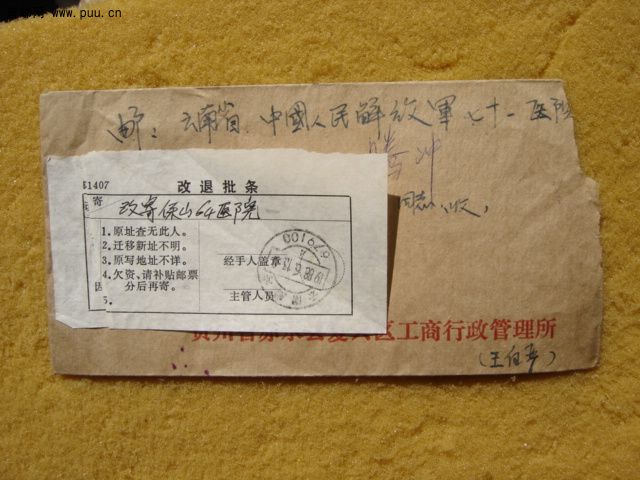 www.puu.cn
邮：云南省 中國人民解放軍七十一医院
腾冲
同志 收
51407
改退批条
寄
改寄保山64医院
1.原址查无此人。
2.迁移新址不明。
3.原写地址不详。
4.欠资、请补贴邮票
分后再寄。
5.
经手人盖章
主管人员
679100
工商行政管理所